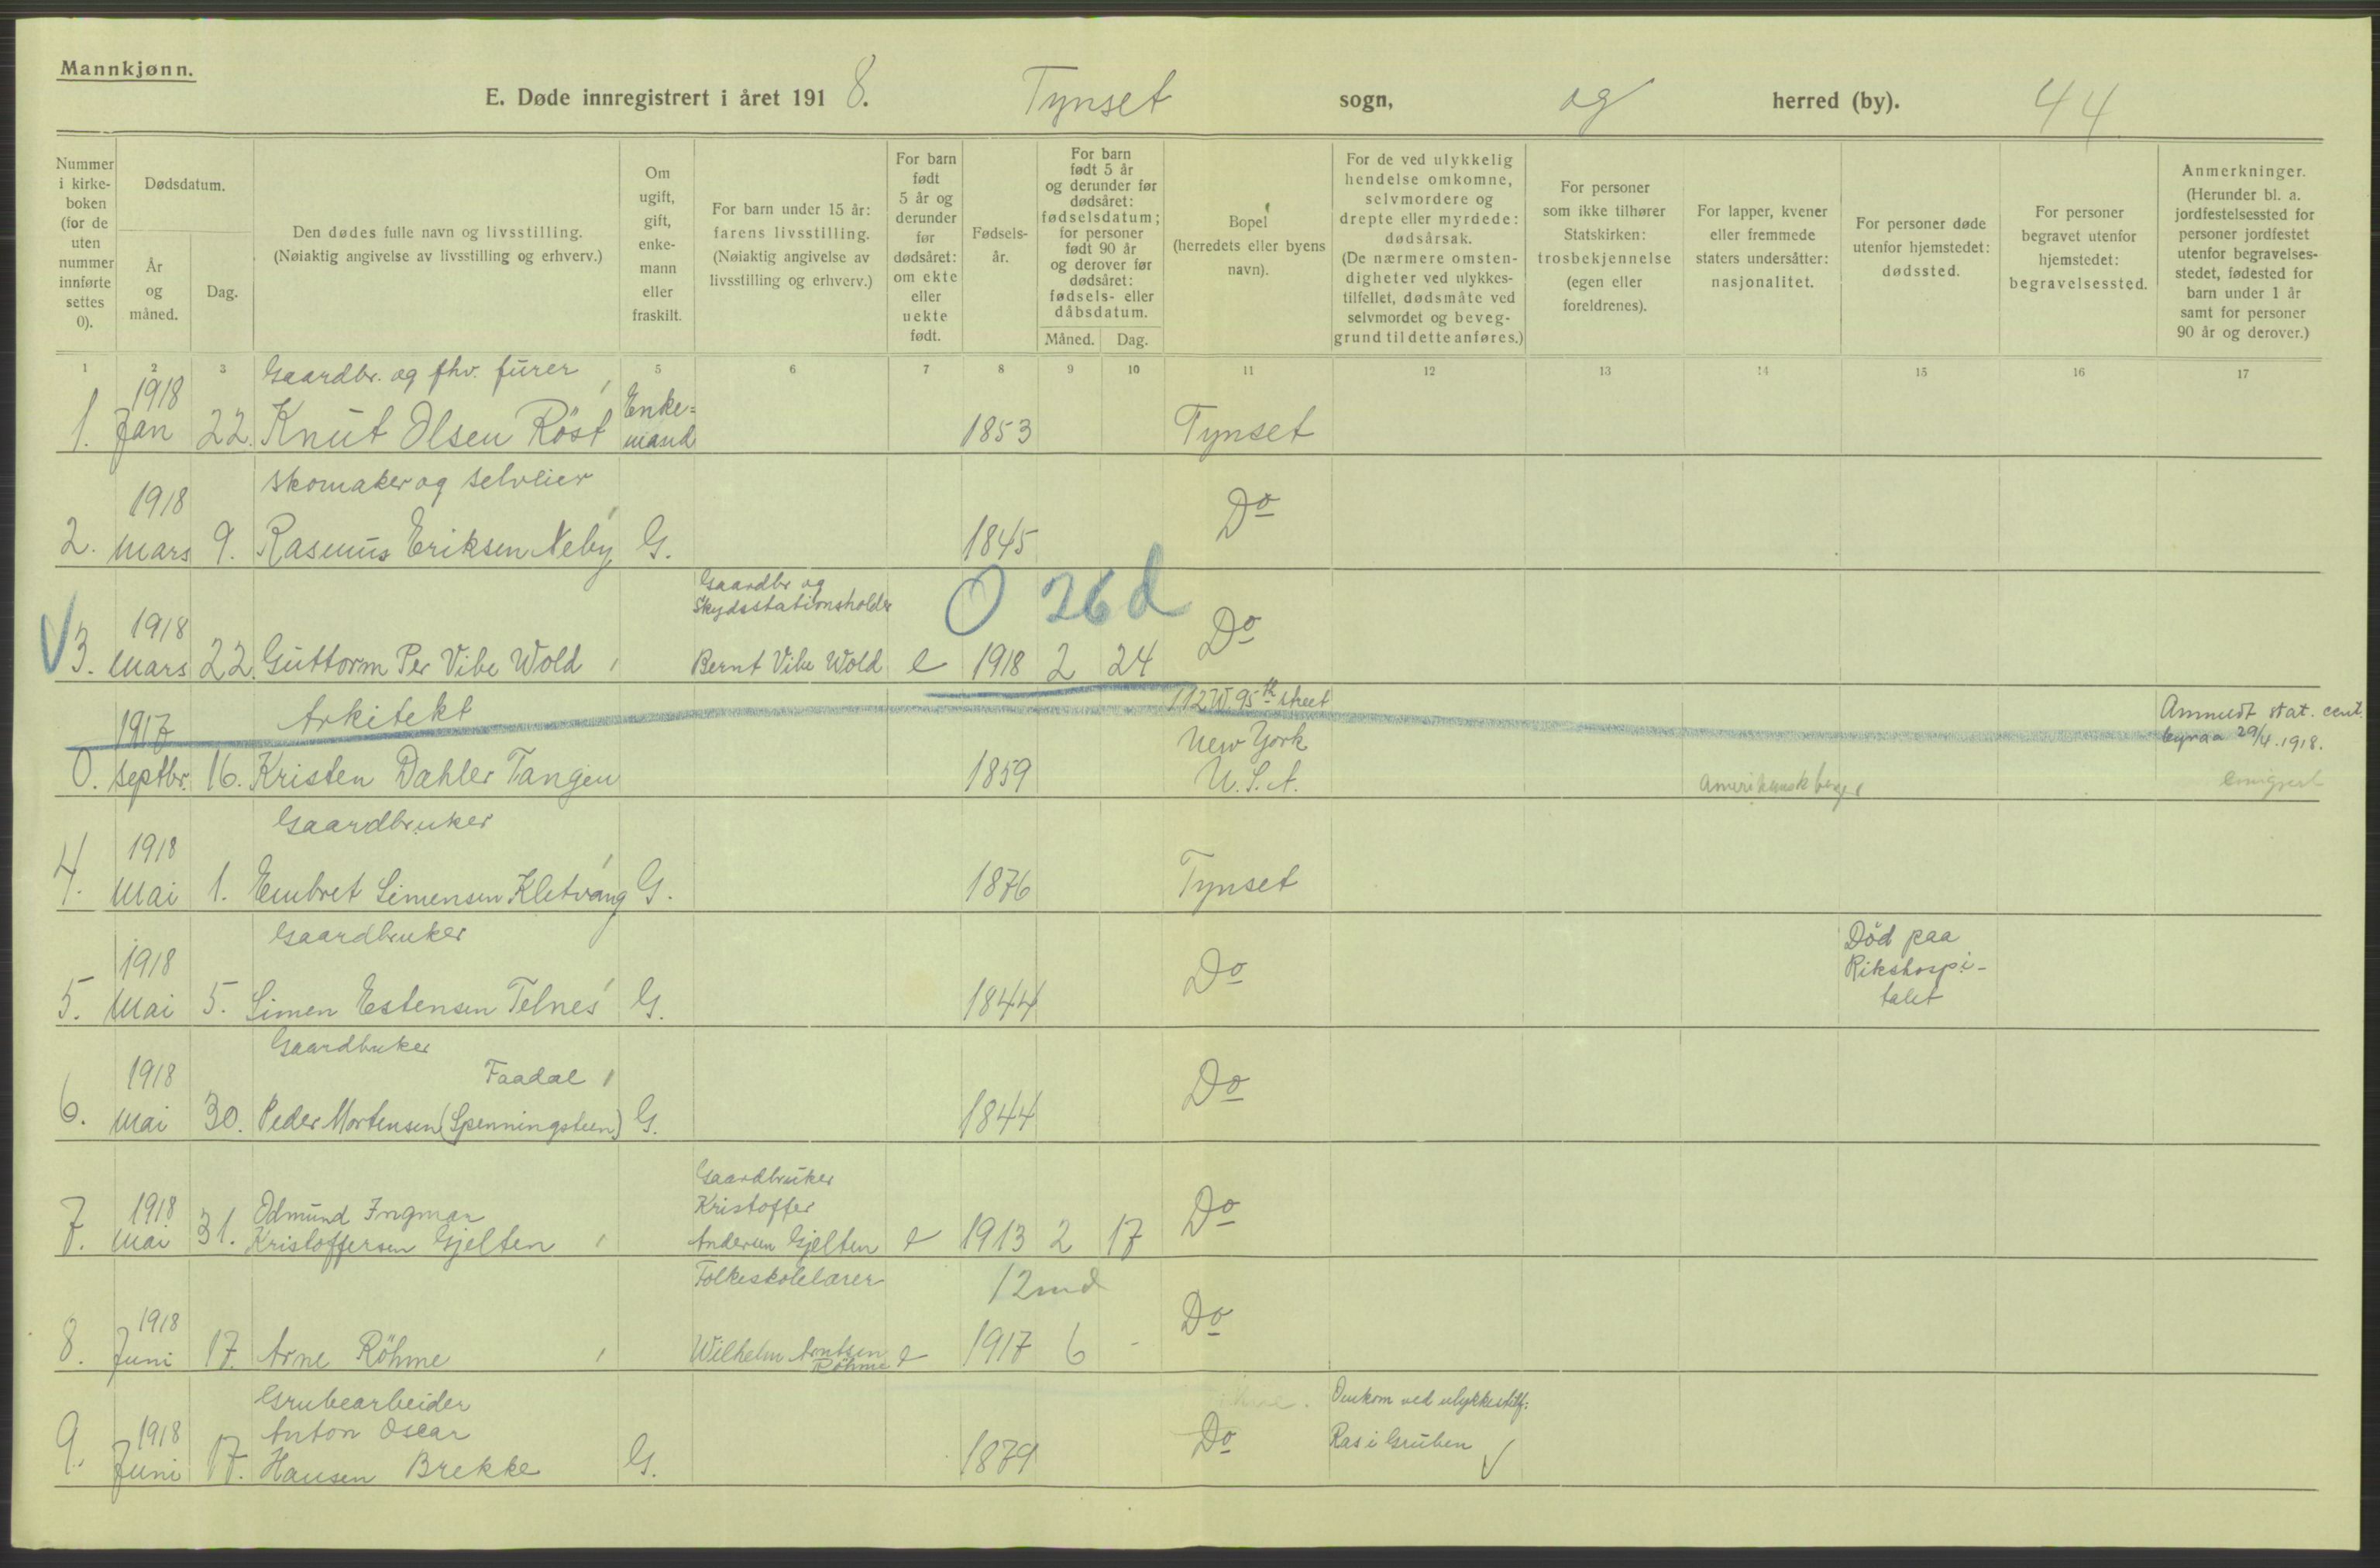 Mannkjønn.
E. Døde innregistrert i året 1918. Tynset sogn, og herred (by). 44
Nummer i kirke- boken (for de uten nummer innførte settes 0).
Dødsdatum.
År og måned.
Dag.
Den dødes fulle navn og livsstilling.
(Nøiaktig angivelse av livsstilling og erhverv.)
Om ugift, gift, enke- mann eller fraskilt.
For barn under 15 år: farens livsstilling. (Nøiaktig angivelse av livsstilling og erhverv.)
For barn født 5 år og derunder før dødsåret: om ekte eller uekte født.
Fødsels- år.
For barn født 5 år og derunder før dødsåret: fødselsdatum; for personer født 90 år og derover før dødsåret: fødsels- eller dåbsdatum.
Måned. Dag.
Bopel (herredets eller byens navn).
For de ved ulykkelig hendelse omkomne, selvmordere og drepte eller myrdede: dødsårsak. (De nærmere omsten- digheter ved ulykkes- tilfellet, dødsmåte ved selvmordet og beveg- grund til dette anføres.)
For personer som ikke tilhører Statskirken: trosbekjennelse (egen eller foreldrenes).
For lapper, kvener eller fremmede staters undersåtter: nasjonalitet.
For personer døde utenfor hjemstedet: dødssted.
For personer begravet utenfor hjemstedet: begravelsessted.
Anmerkninger. (Herunder bl. a. jordfestelsessted for personer jordfestet utenfor begravelses- stedet, fødested for barn under 1 år samt for personer 90 år og derover.)
1 2 3 5 6 7 8 9 10 11 12 13 14 15 16 17
Gaardbr. og fhv. furer
1. 1918 Jan 22. Knut Olsen Röst Enke= mand 1853 Tynset
Skomaker og selveier
2. 1918 Mars 9. Rasmus Eriksen Neby G. 1845 Do
Gaardbr og Skydsstationsholder
0 26 d
3. 1918 Mars 22. Guttorm Per Vibe Wold Bernt Vibe Wold e 1918 2 24 Do
Arkitekt
0. 1917 Septbr. 16. Kristen Dahler Tangen 1859 112 W. 95th street New York U.S.A. Amerikansk borger Anmeldt stat. cent. byraa 29/4.1918. emigrert
Gaardbruker
4. 1918 Mai 1. Embret Simensen Kletvang G. 1876 Tynset
Gaardbruker
5. 1918 Mai 5. Simen Estensen Telnes G. 1844 Do Död paa Rikshospi- talet
Gaardbruker
Faadal
6. 1918 Mai 30. Peder Mortensen (Spenningsteen) G. 1844 Do
Gaardbruker
7. 1918 Mai 31. Odmund Ingmar Kristoffersen Gjelten Kristoffer Andersen Gjelten e 1913 2 17 Do
Folkeskolelærer 12 md
8. 1918 Juni 17. Arne Röhme Wilhelm Arntsen Röhme e 1917 6 - Do
Grubearbeider
9. 1918 Juni 17. Anton Oscar Hansen Brekke G. 1879 Do Omkom ved ulykkestilf: Ras i Gruben